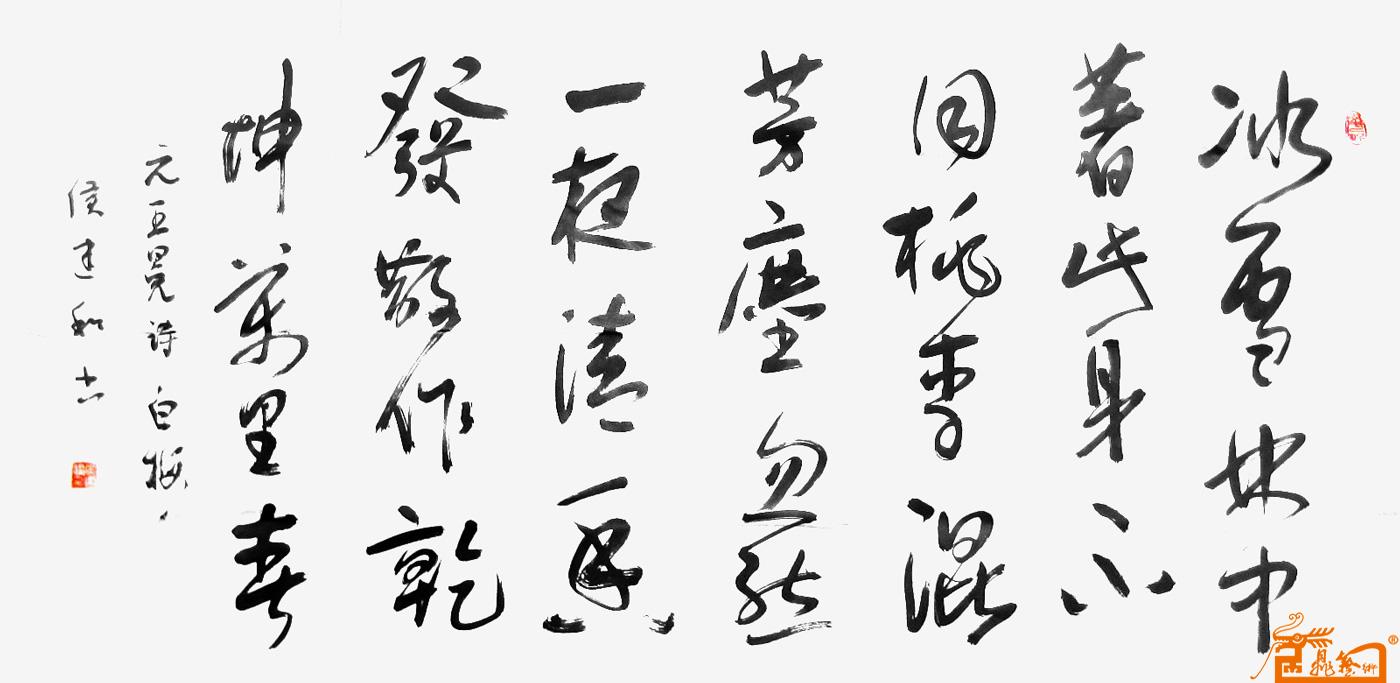 冰雪林中
著此身不
同桃李混
芳塵忽然
一夜清香
發散作乾
坤萬里春
元王冕詩白梅
侯建和